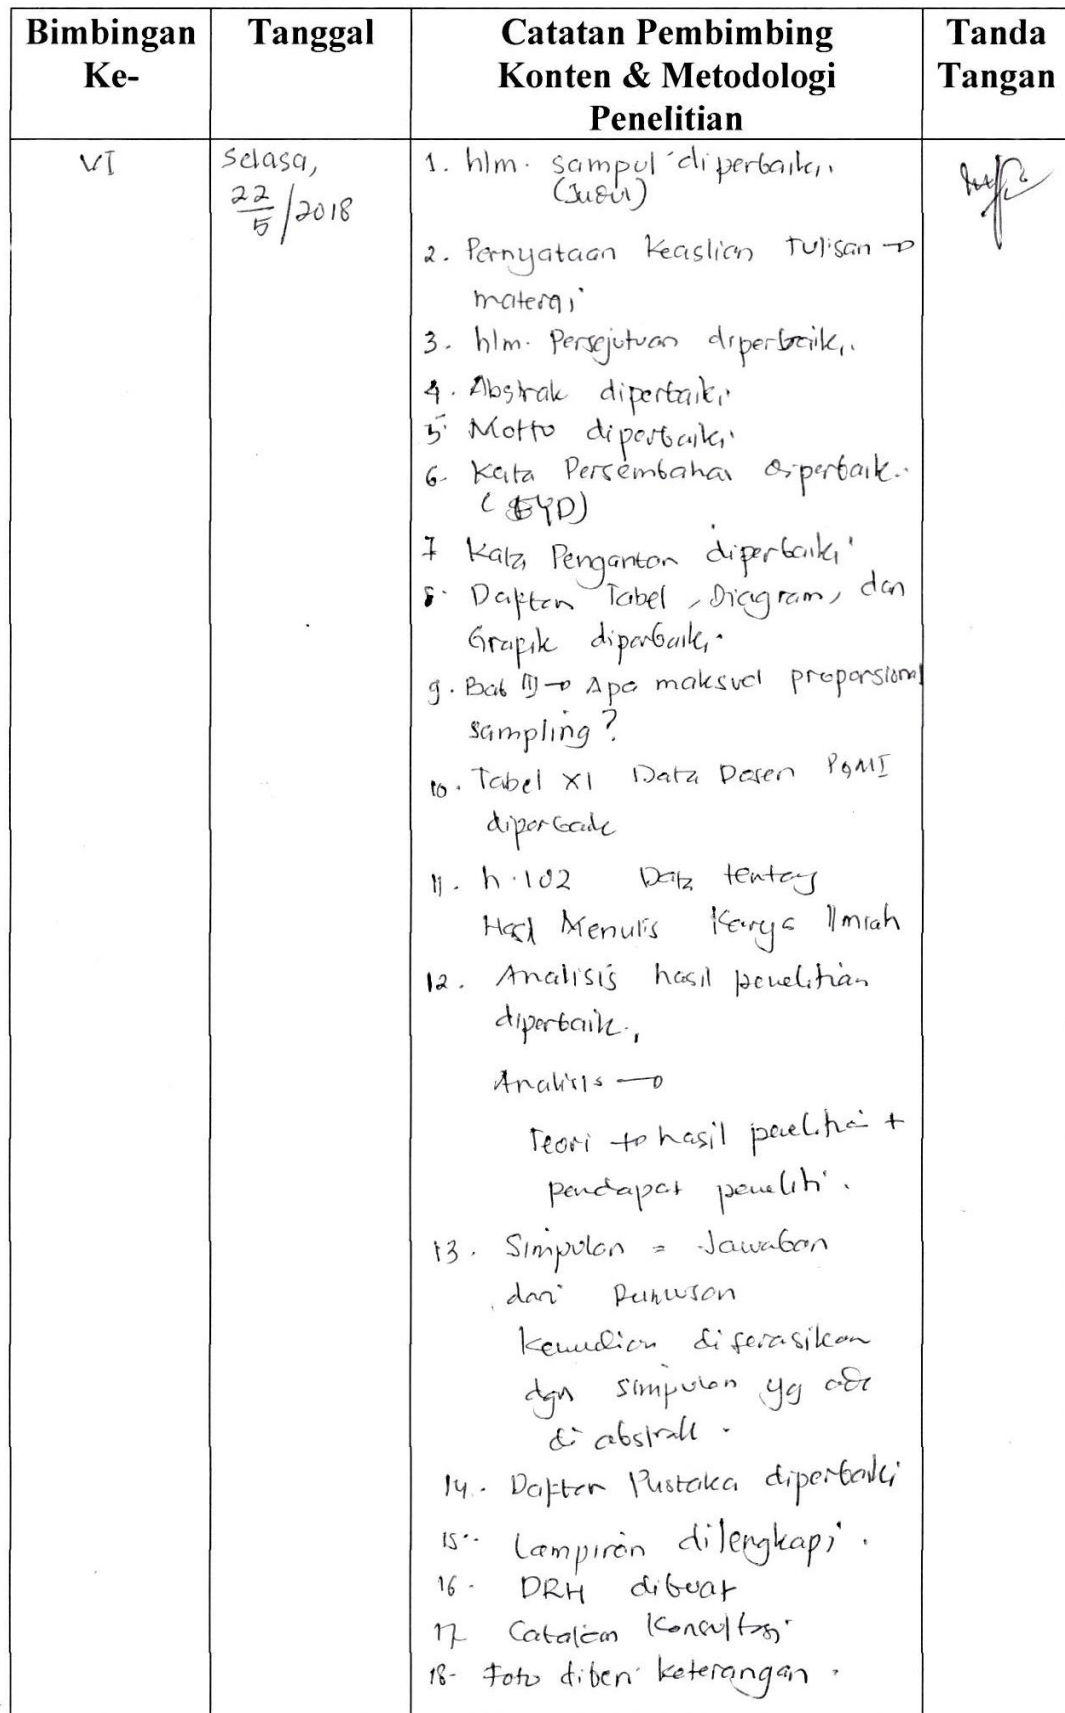 Bimbingan Ke-
Tanggal
Catatan Pembimbing
Konten & Metodologi
Penelitian
Tanda Tangan
VI
Selasa,
22/5/2018
1. hlm. sampul diperbaiki.
(Judul)
2. Pernyataan Keaslian Tulisan →
materai
3. hlm. Persejutuan diperbaiki.
4. Abstrak diperbaiki
5. Motto diperbaiki
6. Kata Persembahan diperbaiki.
(EYD)
7 Kata Pengantar diperbaiki
8. Daftar Tabel, Diagram, dan
Grafik diperbaiki.
9. Bab III → Apa maksud proporsional
sampling?
10. Tabel XI Data Dosen PGMI
diperbaiki
11. h. 102 Data tentang
Hasil Menulis Karya Ilmiah
12. Analisis hasil penelitian
diperbaiki.
Analisis →
Teori → hasil penelitian +
pendapat peneliti.
13. Simpulan = Jawaban
dari Rumusan
kemudian diserasikan
dgn simpulan yg ada
di abstrak.
14. Daftar Pustaka diperbaiki
15. Lampiran dilengkapi.
16. DRH dibuat
17 Catatan Konsultasi
18- Foto diberi keterangan.